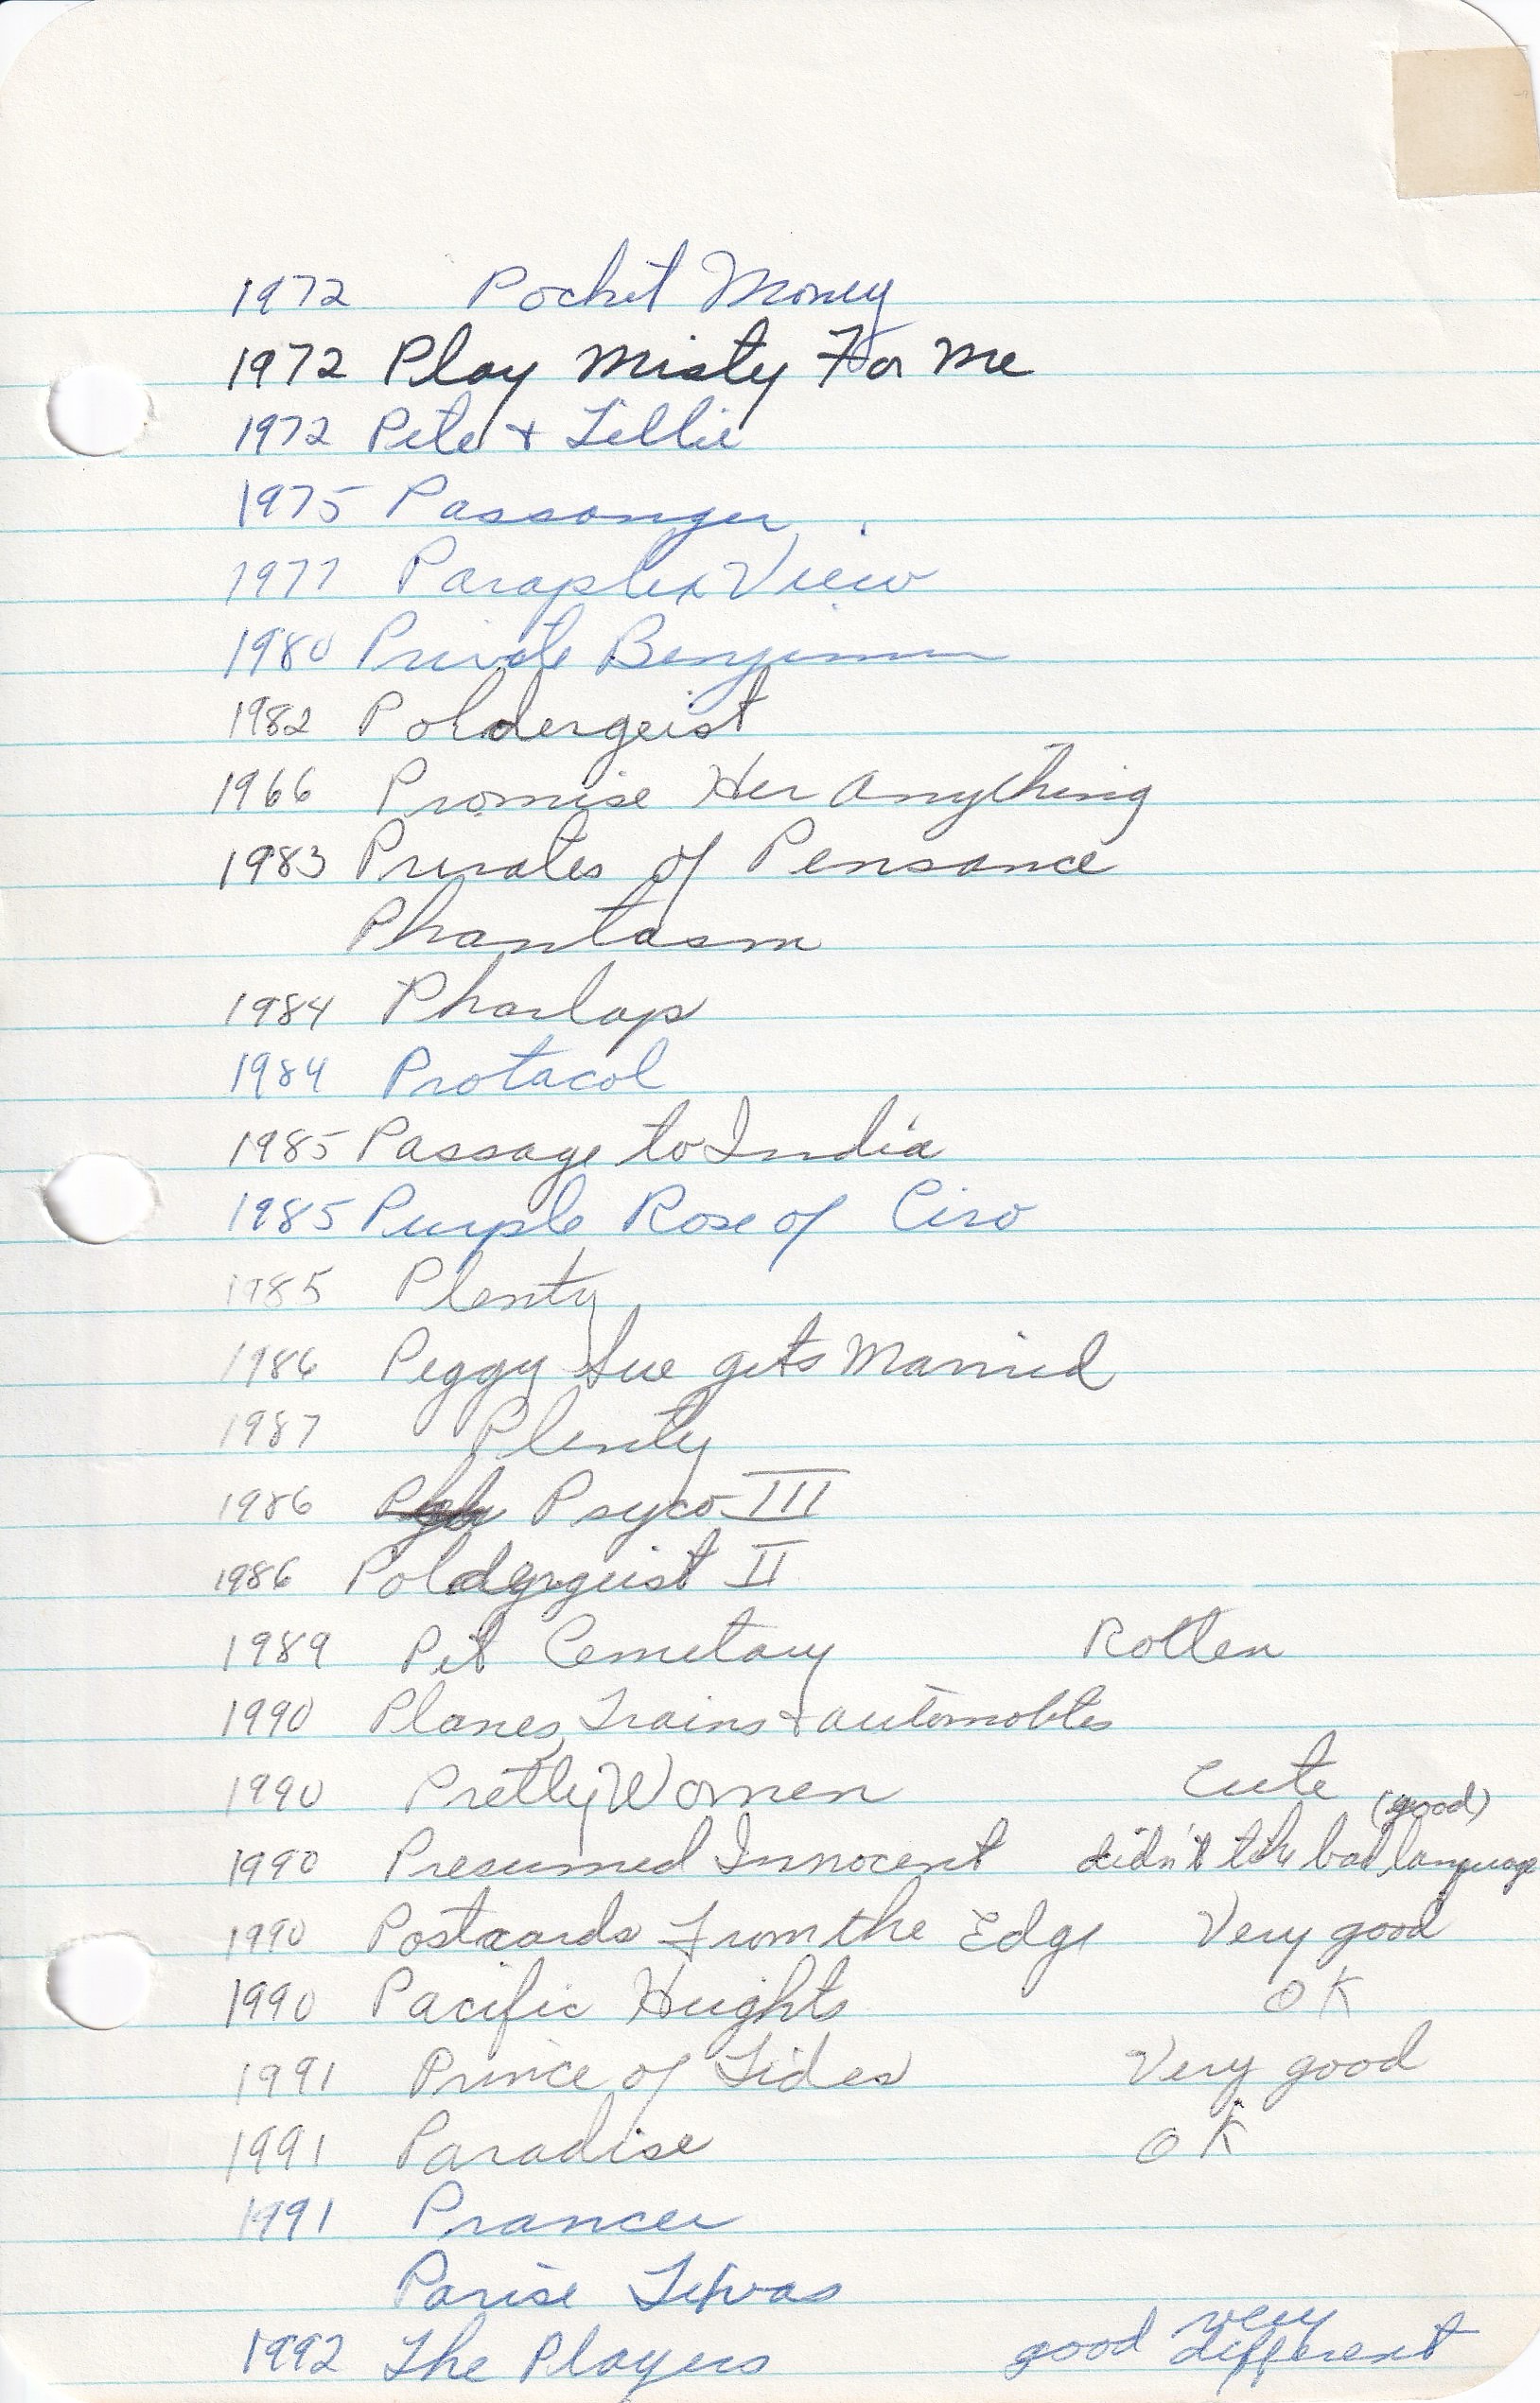 1972 Pocket Money
1972 Play Misty For Me
1972 Pete + Tillie
1975 Passonger
1977 Paraplex View
1980 Private Benjimin
1982 Poldergeist
1966 Promise Her Anything
1983 Pirates of Pensance
Phantasm
1984 Pharlap
1984 Protacol
1985 Passage to India
1985 Purple Rose of Ciro
1985 Plenty
1986 Peggy Sue gets Married
1987 Plenty
1986 Psyco III
1986 Poldergeist II
1989 Pet Cemetary Rotten
1990 Planes, Trains + automobles
1990 Pretty Women Cute
(good)
1990 Presumed Innocent didn't like bad language
1990 Postcards From the Edge Very good
1990 Pacific Heights OK
1991 Prince of Tides Very good
1991 Paradise OK
1991 Prancer
Paris Texas
1992 The Players good very different